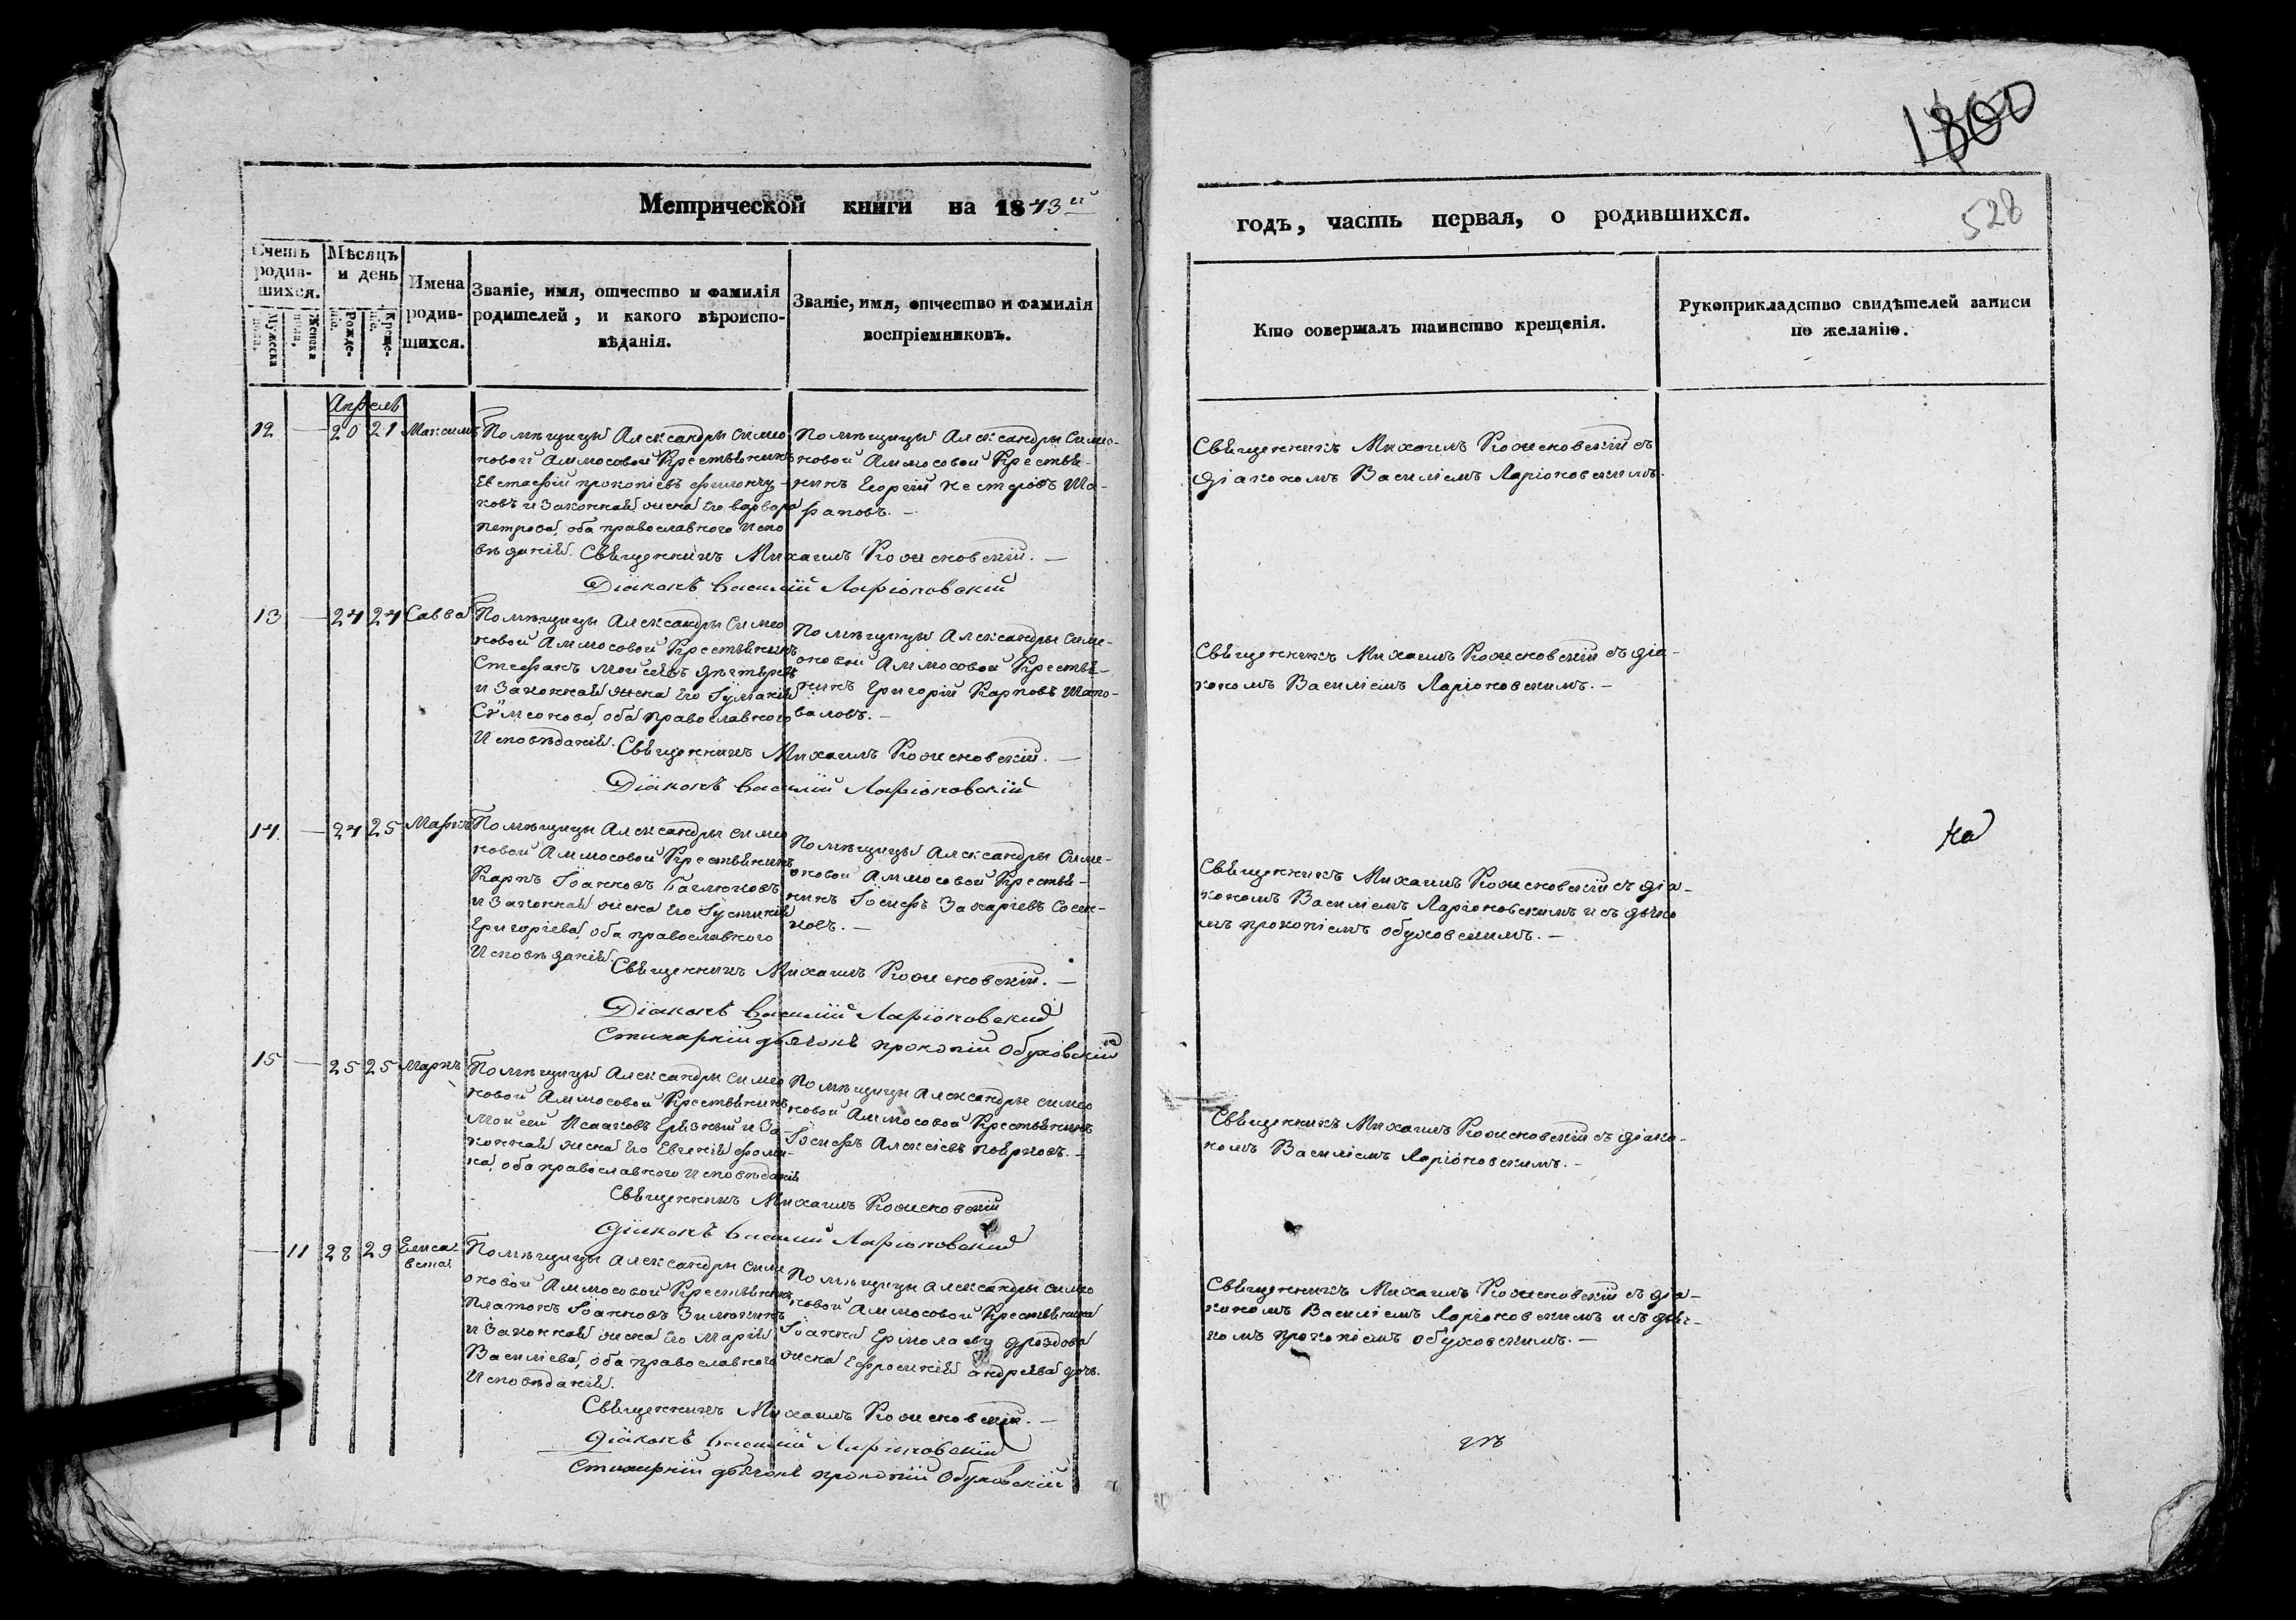 1800
528
Метрической книги на 1843й
годъ, часть первая, о родившихся.
Счетъ родив-шихся.
Мужеска пола.
Женска пола.
Мѣсяцъ и день
Рожде-нія.
Креще-нія.
Имена родив-шихся.
Званіе, имя, отчество и фамилія
родителей, и какого вѣроиспо-
вѣданія.
Званіе, имя, отчество и фамилія
воспріемниковъ.
Кто совершалъ таинство крещенія.
Рукоприкладство свидѣтелей записи
по желанію.
Апрель
12 — 20 21 Максимъ
Помѣщицы Александры Симео
новой Аммосовой Крестьянинъ
Евстафій Прокопіевъ
ковъ и Законная жена Его варвара
петрова, оба православного Испо
вѣданія. Священникъ Михаилъ Кожсновскій. —
Діаконъ Василій Ларіоновскій
Помѣщицы Александры Симео-
новой Аммосовой Крестья-
нинъ Георгій Нестеровъ Ша-
раповъ. —
Священникъ Михаилъ Кожсновскій съ
діакономъ Василіемъ Ларіоновскимъ.
13 — 24 24 Савва
Помѣщицы Александры Симео
новой Аммосовой Крестьянинъ
Стефанъ Мойсеевъ
и Законная жена Его Іуліанія
Сѵмеонова, оба православного
Исповѣданія. Священникъ Михаилъ Кожсновскій. —
Діаконъ Василій Ларіоновскій
Помѣщицы Александры Симе-
оновой Аммосовой Крестья-
нинъ Григорій Карповъ Шапо-
валовъ. —
Священникъ Михаилъ Кожсновскій съ діа-
кономъ Василіемъ Ларіоновскимъ. —
14. — 24 25 Маркъ
Помѣщицы Александры Симео
новой Аммосовой Крестьянинъ
Карпъ Іоанновъ
и Законная жена Его Іустинія
Григоріева, оба православного
Исповѣданія.
Священникъ Михаилъ Кожсновскій. —
Діаконъ Василій Ларіоновскій
Стихарный дьячокъ Прокопій Обуховскій
Помѣщицы Александры Симе-
оновой Аммосовой Крестья-
нинъ Іосифъ Захаріевъ
новъ. —
На
Священникъ Михаилъ Кожсновскій съ діа-
кономъ Василіемъ Ларіоновскимъ и съ дьячко
мъ прокопіемъ обуховскимъ. —
15 — 25 25 Маркъ
Помѣщицы Александры Симео
новой Аммосовой Крестьянинъ
Мойсей Исааковъ и За-
конная жена Его Евгенія Фоми-
на, оба православного Исповѣданія
Священникъ Михаилъ Кожсновскій
Діаконъ Василій Ларіоновскій
Помѣщицы Александры Симео
новой Аммосовой Крестьянинъ
Іосифъ Алексіевъ
Священникъ Михаилъ Кожсновскій съ діако-
номъ Василіемъ Ларіоновскимъ. —
— 11 28 29 Елиса-
вета
Помѣщицы Александры Симе
оновой Аммосовой Крестьянинъ
Платонъ Іоанновъ
и Законная жена Его Марія
Василіева, оба православного
Исповѣданія.
Священникъ Михаилъ Кожсновскій. —
Діаконъ Василій Ларіоновскій
Стихарный дьячокъ Прокопій Обуховскій
Помѣщицы Александры Симео
новой Аммосовой Крестьянина
Іоанна Ермолаева Дроздова
жена Ефросинія Андреева дочь.
Священникъ Михаилъ Кожсновскій съ діа-
кономъ Василіемъ Ларіоновскимъ и съ дьяч-
комъ прокопіемъ обуховскимъ. —